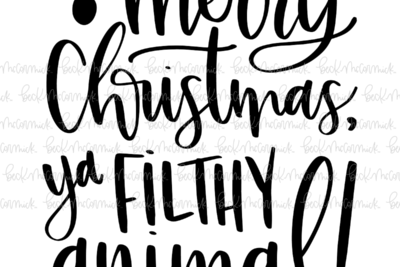 merry
Christmas,
ya FILTHY
animal!